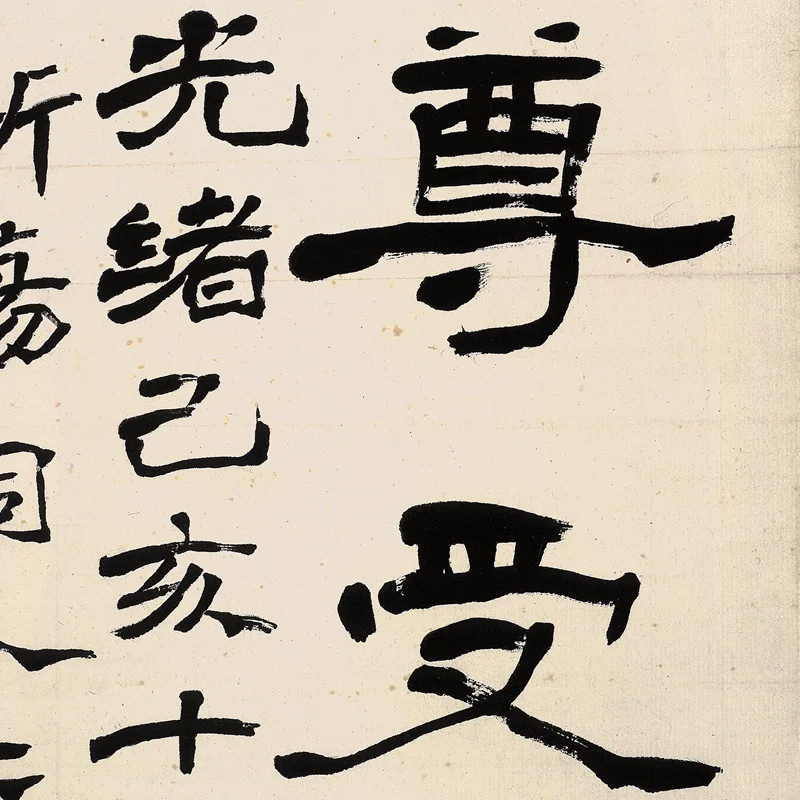 尊受
光緒己亥十